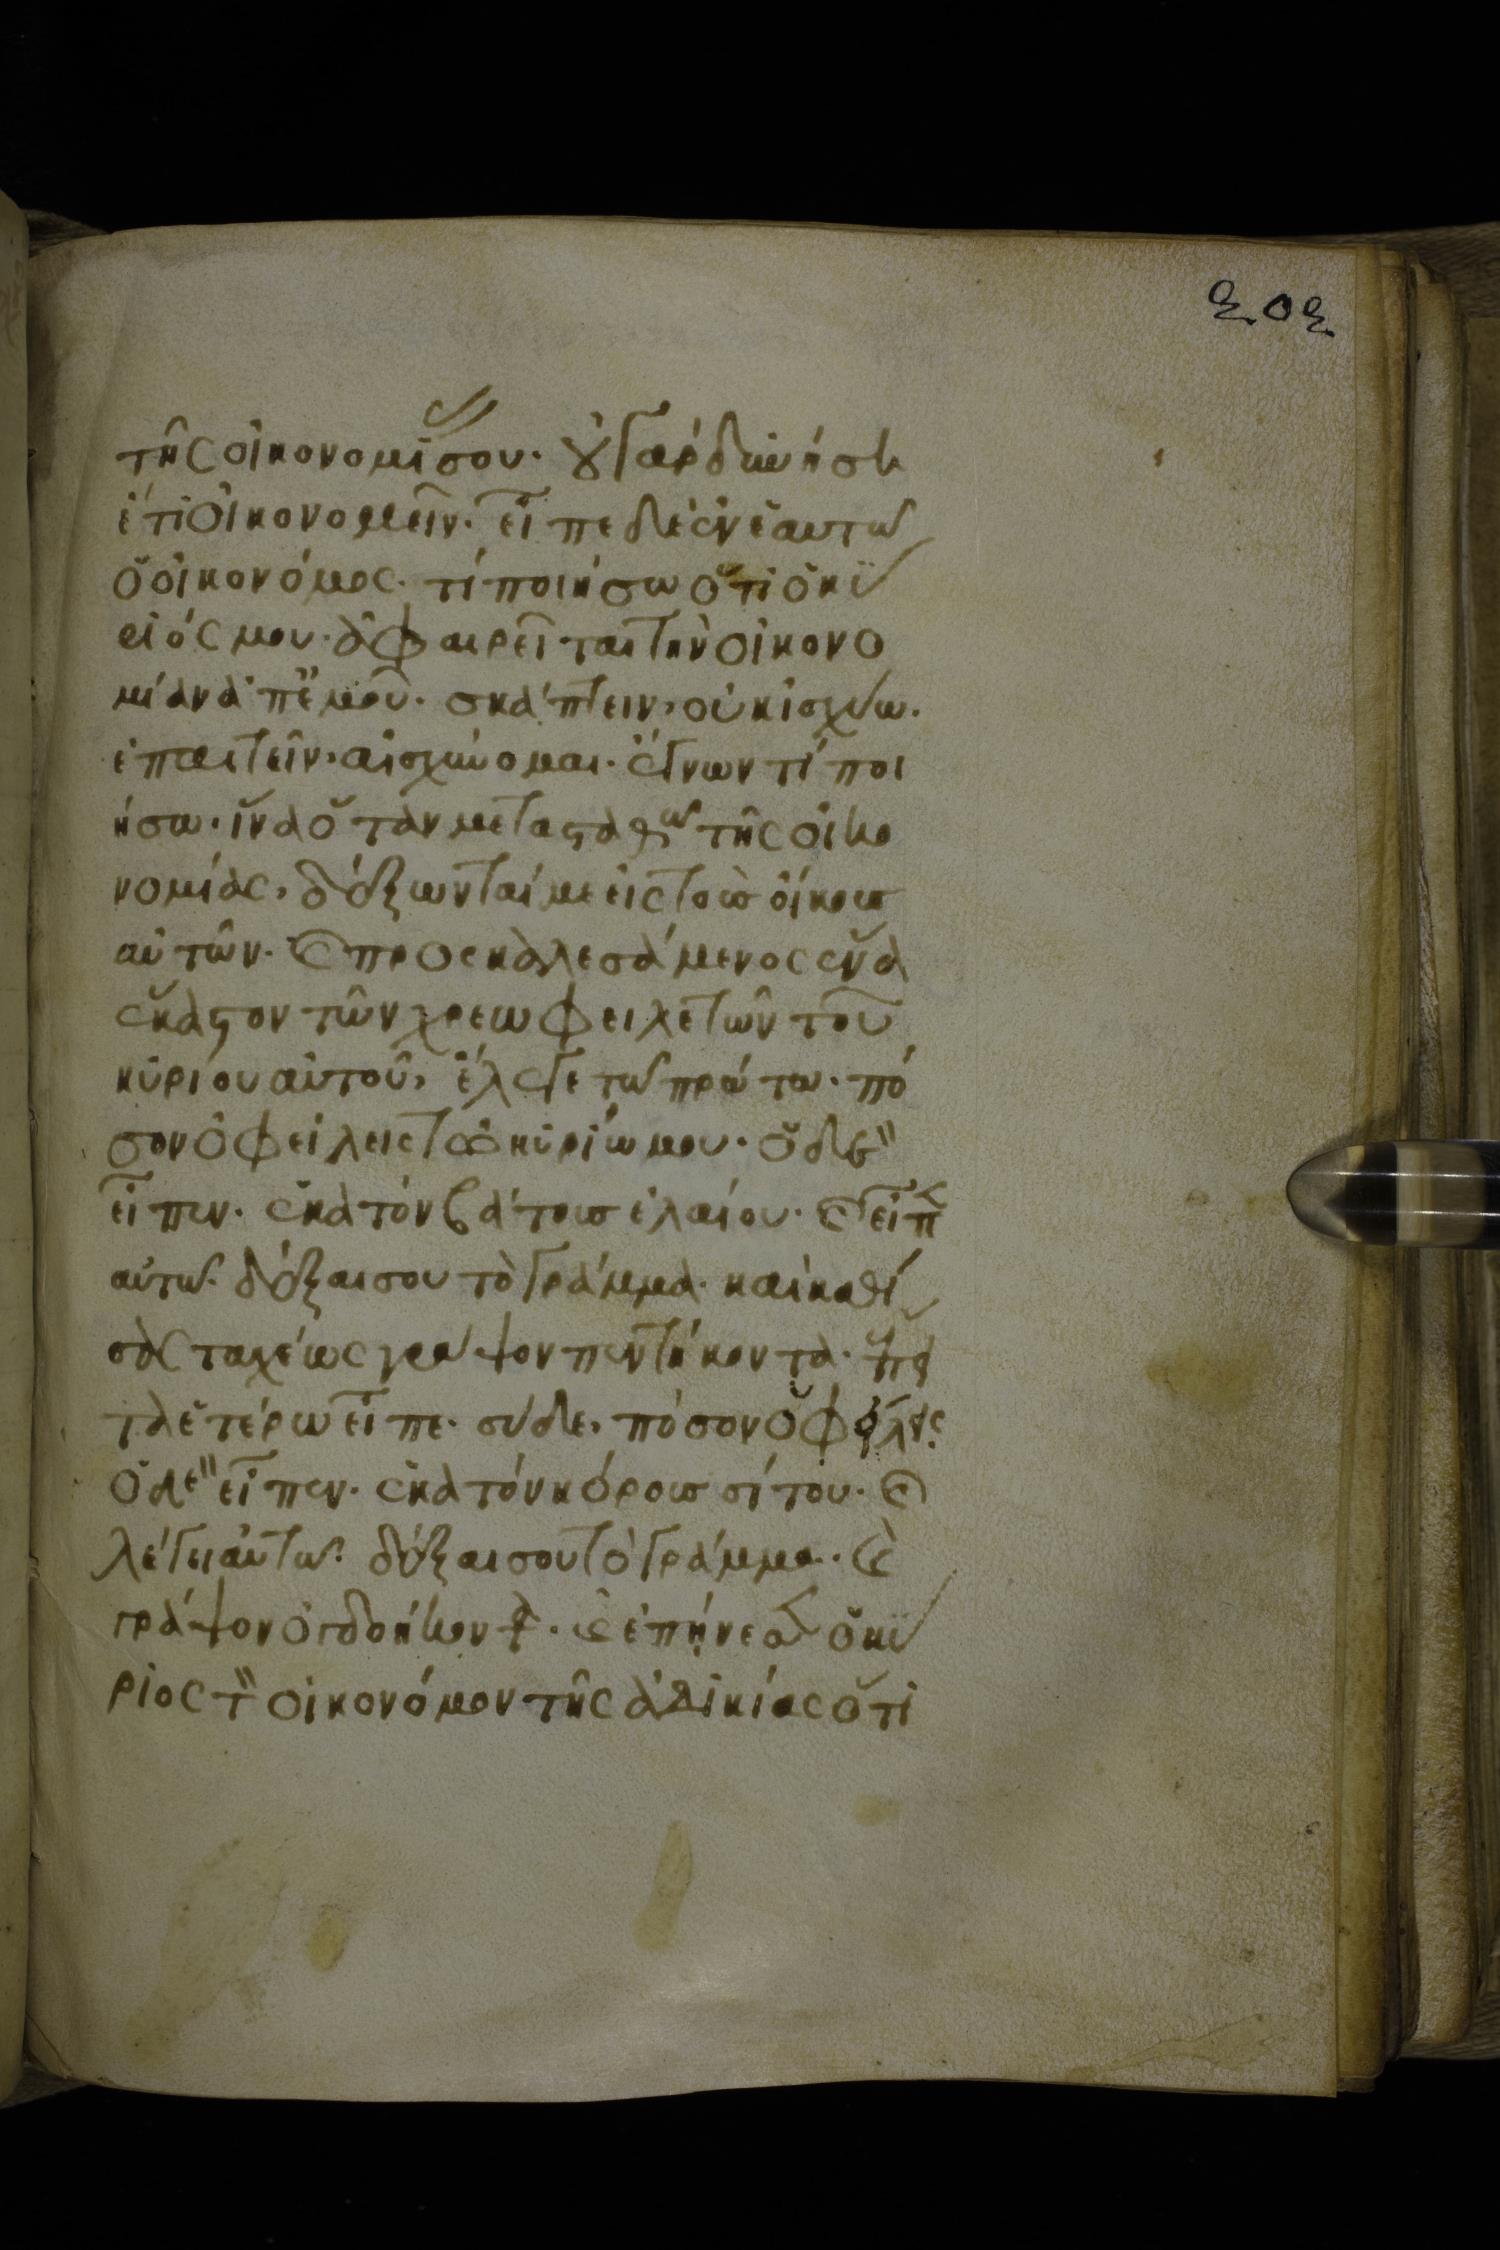 202
τῆς οἰκονομί σου· οὐ γὰρ δυνήσει
ἔτι οἰκονομεῖν· εἶπε δὲ ἐν ἑαυτῶ
ὁ οἰκονόμος· τί ποιήσω ὅτι ὁ κύ
ριός μου· ἀφαιρεῖται τὴν οἰκονο
μίαν ἀπ ἐμοῦ· σκάπτειν, οὐκ ἰσχύω·
ἐπαιτεῖν, αἰσχύνομαι· ἔγνων τί ποι
ήσω· ἵνα ὅταν μετασταθῶ τῆς οἰκο
νομίας, δέξωνταί με εἰς τοὺς οἴκους
αὐτῶν· καὶ προσκαλεσάμενος ἕνα
ἕκαστον τῶν χρεωφειλετῶν τοῦ
κυρίου αὐτοῦ, ἔλεγε τῶ πρώτω· πό
σον ὀφείλεις τῶ κυρίω μου· ὁ δὲ
εἶπεν· ἑκατὸν βάτους ἐλαίου· καὶ εἶπ
αὐτῶ· δέξαι σου τὸ γράμμα· καὶ καθί
σας ταχέως γράψον πεντήκοντα· ἔπει
τα ἑτέρω εἶπε· σὺ δὲ, πόσον ὀφείλεις
ὁ δὲ εἶπεν· ἑκατὸν κόρους σίτου· καὶ
λέγει αὐτῶ· δέξαι σου τὸ γράμμα· καὶ
γράψον ὀγδοήκοντα· καὶ ἐπήνεσεν ὁ κύ
ριος τὸν οἰκονόμον τῆς ἀδικίας ὅτι